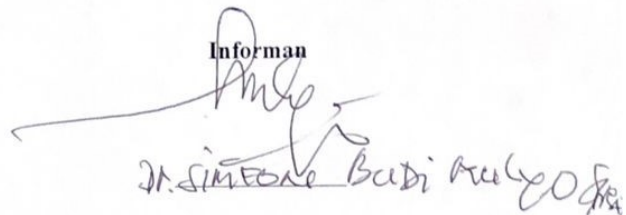 Informan
Dr. SIMEONE BUDI MULYO